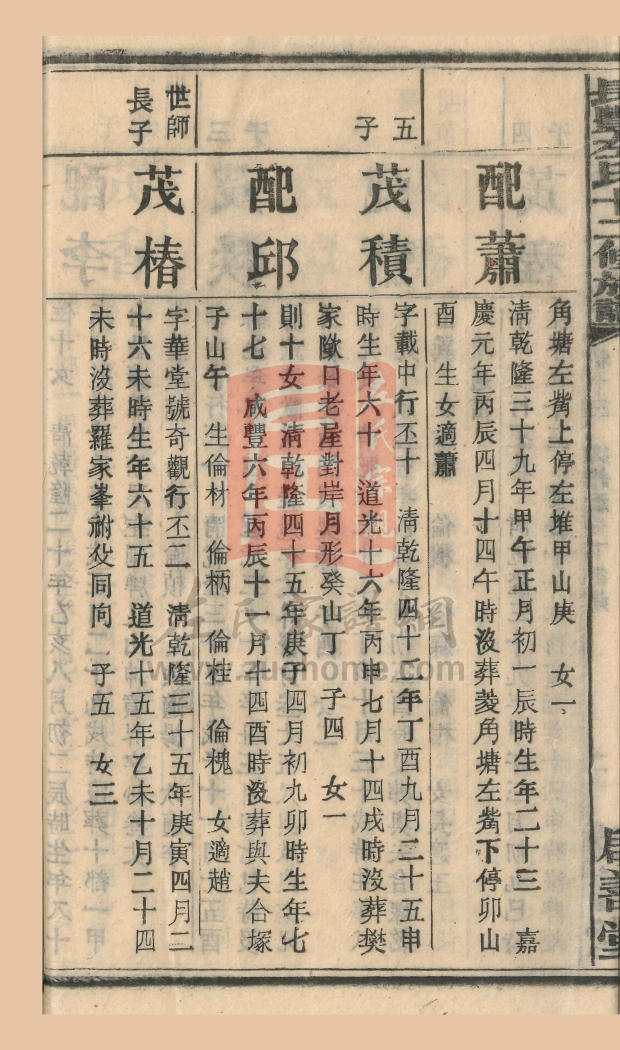 長豐左氏十二修族譜
居善堂
角塘左觜上停左堆甲山庚 女一
配蕭
清乾隆三十九年甲午正月初一辰時生年二十三 嘉
慶元年丙辰四月十四午時沒葬菱角塘左觜下停卯山
酉 生女適蕭
五
子
茂積
字載中行丕十 清乾隆四十二年丁酉九月二十五申
時生年六十 道光十六年丙申七月十四戌時沒葬樊
家歘口老屋對岸月形癸山丁 子四 女一
配邱
則十女 清乾隆四十五年庚子四月初九卯時生年七
十七 咸豐六年丙辰十一月十四酉時沒葬與夫合塚
子山午 生倫材 倫柄 倫桂 倫槐 女適趙
世師
長子
茂椿
字華堂號奇觀行丕二 清乾隆三十五年庚寅四月二
十六未時生年六十五 道光十五年乙未十月二十四
未時沒葬羅家峯祔父同向 子五 女三
左氏家譜網
www.zuohome.com